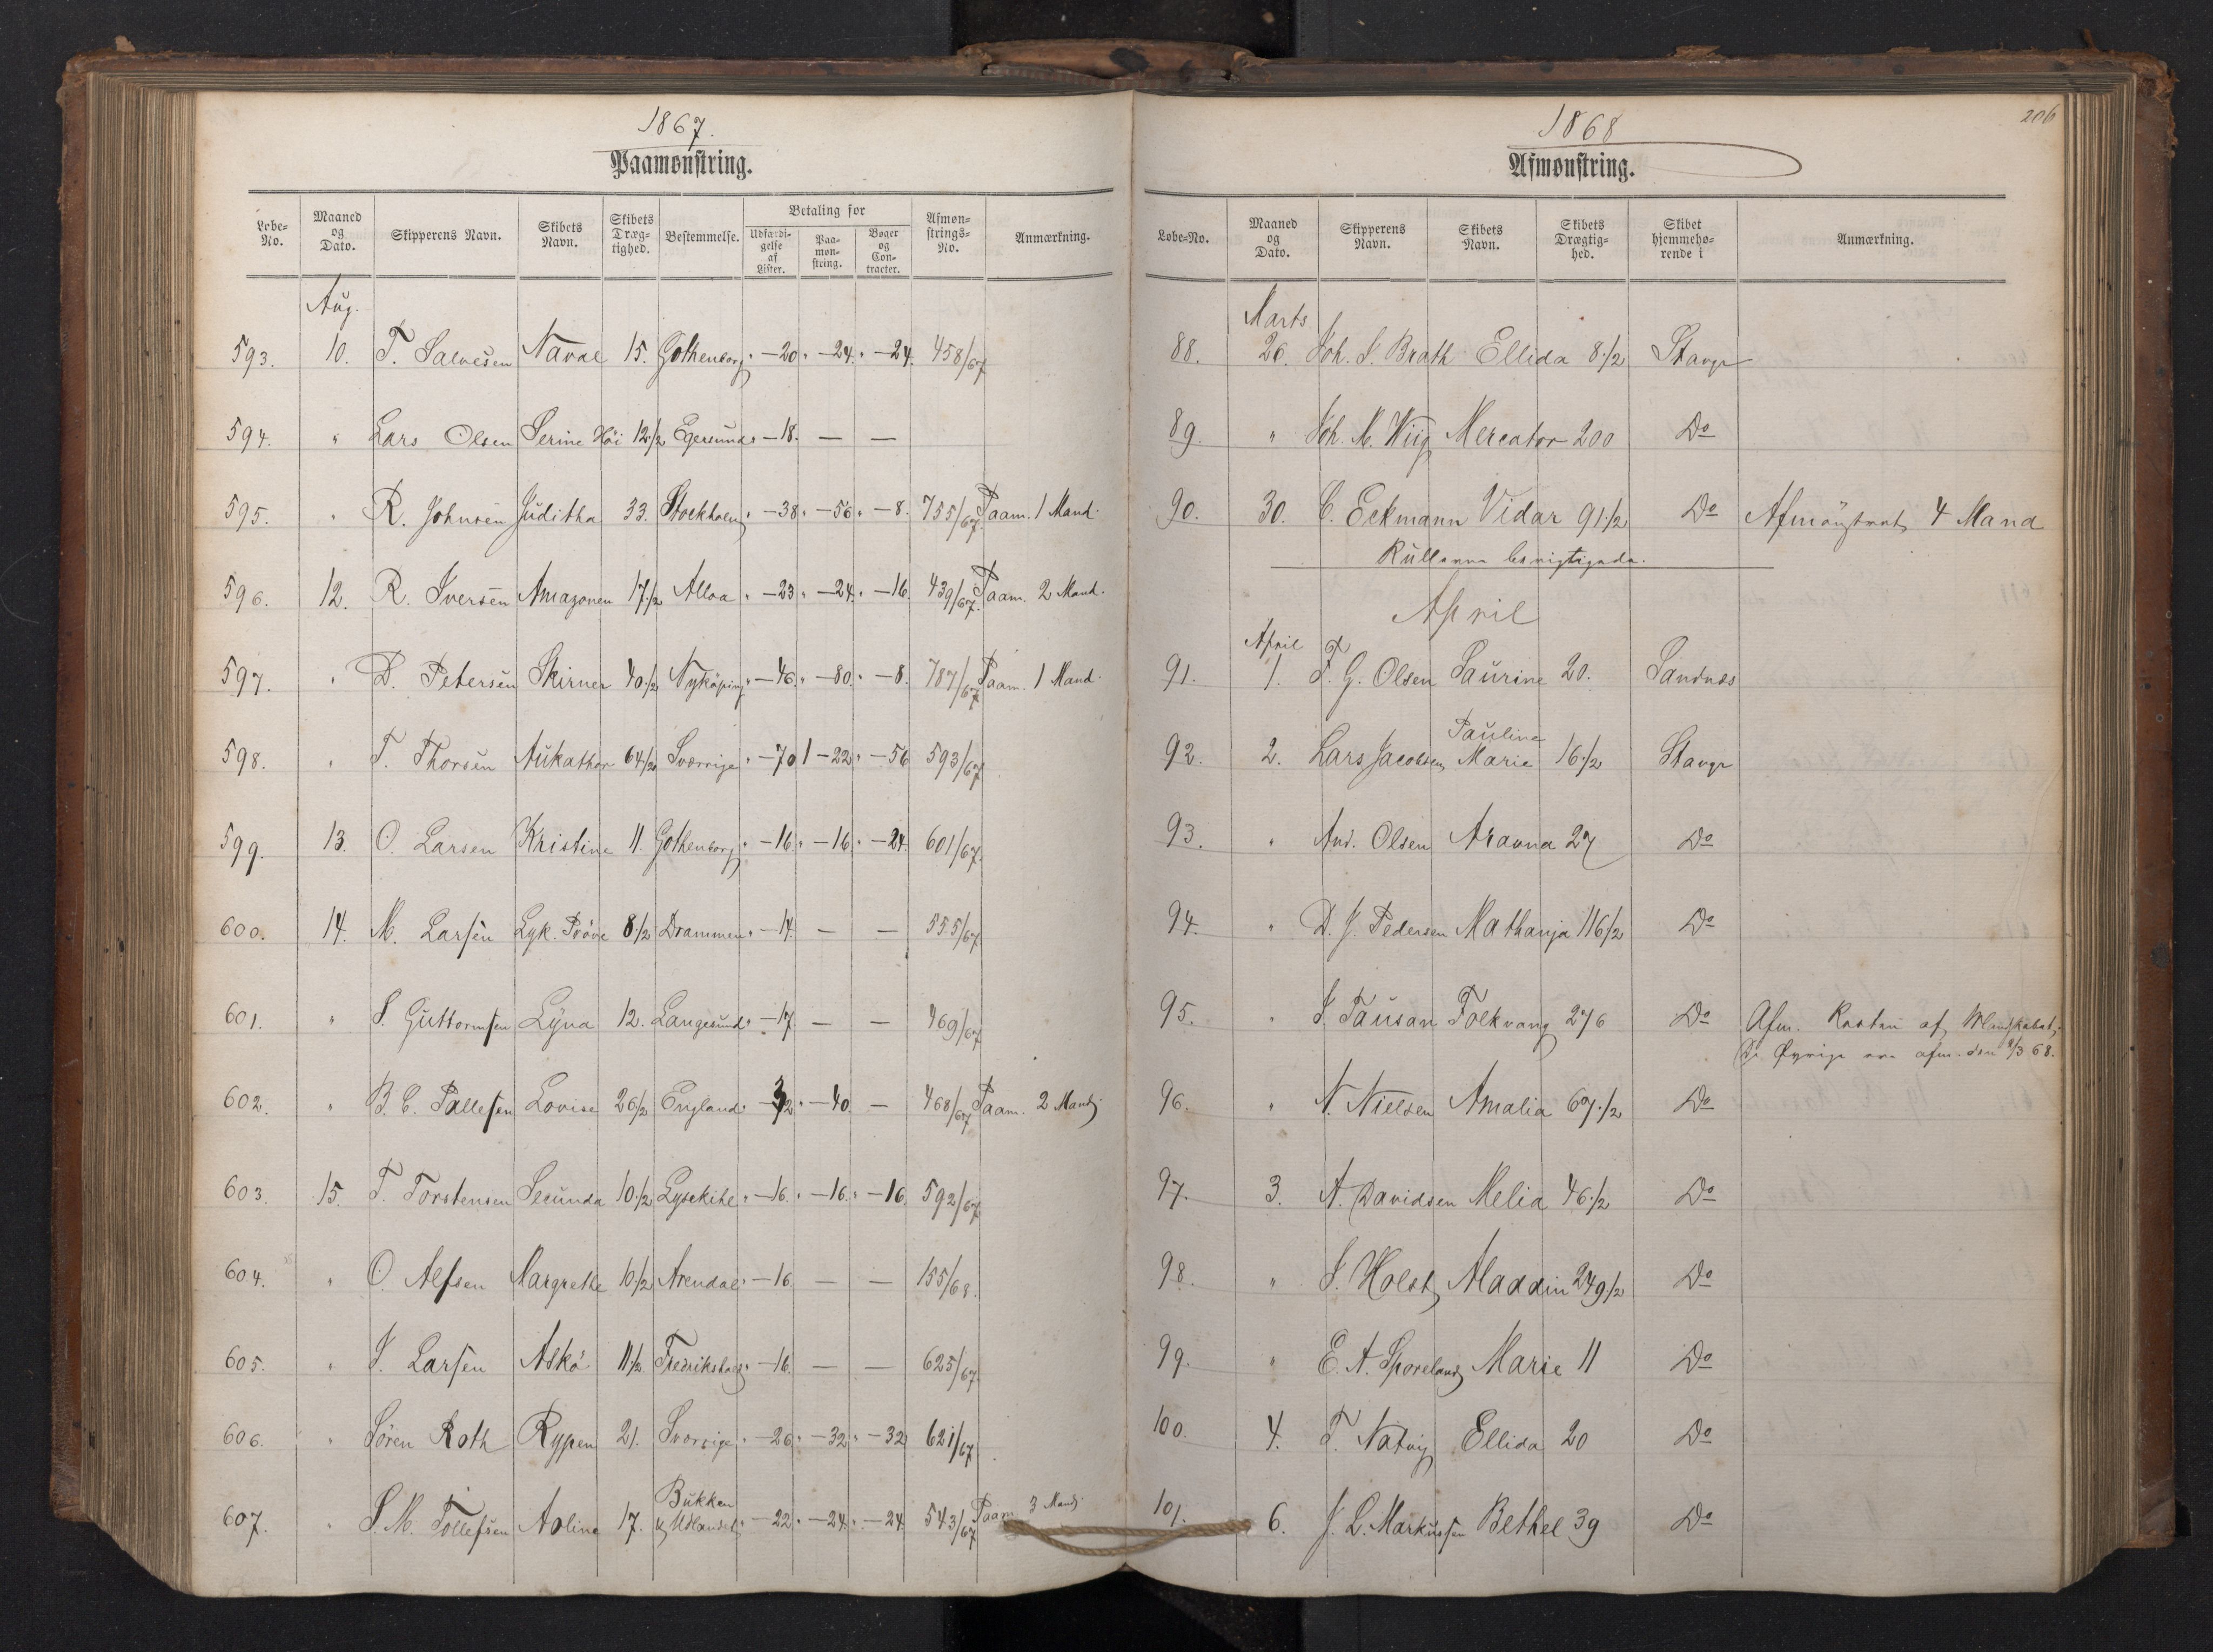 1867.
Paamønstring.
Løbe-No. Maaned og Dato. Skipperens Navn. Skibets Navn. Skibets Drægtighed. Bestemmelse. Betaling for Udfærdigelse af Lister. Paamønstring. Bøger og Contracter. Afmønstrings-No. Anmærkning.
Aug.
593. 10. T. Salvesen Naval 15. Gothenborg " —20 " —24 " —24. 458/67
594. " Lars Olsen Serine Höi 12 1/2 Egersund " —18. — —
595. " R. Johnsen Juditha 33. Stockholm " —38 " —56 " —8. 755/67. Paam. 1 Mand.
596. 12. R. Iversen Amazonen 17 1/2 Alloa " —23 " —24 " —16. 439/67. Paam. 2 Mand.
597. " D. Petersen Skirner 40 1/2 Nyköping " —46. " —80. " —8. 787/67 Paam. 1 Mand.
598. " T. Thorsen Aukathor 64 1/2 Sverrige " —70 1 —22 " —56 593/67
599. 13. O. Larsen Kristine 11. Gothenborg " —16 " —16 " —24. 601/67.
600. 14. M. Larsen Lyk. Pröve 8 1/2 Drammen " —14. — — 555/67
601. " S. Guttormsen Lyna 12. Langesund " —17. — — 469/67
602. " B. C. Pallesen Lovise 26 1/2 England " —32 " —40. — 468/67 Paam. 2 Mand
603. 15. T. Torstensen Secunda 10 1/2 Lysekihl " —16. " —16. " —16. 592/67
604. " O. Alfsen Margrethe 10 1/2 Arendal " —16. — — 155/68.
605. " J. Larsen Askö 11 1/2 Fredrikshald " —16. — — 625/67.
606. " Sören Roth Rypen 21. Sverrige " —26 " —32 " —32 621/67
607. " S. M. Tollefsen Aoline 17. Bukken & Udlandet " —22 " —24 " —24. 543/67 Paam. 3 Mand
206
1868
Afmønstring.
Løbe-No. Maaned og Dato. Skipperens Navn. Skibets Navn. Skibets Drægtighed. Skibet hjemmehørende i Anmærkning.
Marts
88. 26. Joh. S. Brath Ellida 8 1/2 Stavgr
89. " Joh. M. Wiig Mercator 200 Do
90. 30. C. Eckmann Vidar 91 1/2 Do Afmönstret 4 Mand
Rullerne berigtigede.
April
April
91. 1. T. G. Olsen Saurine 20. Sandnes
92. 2. Lars Jacobsen Pauline Marie 16 1/2 Stavgr
93. " And. Olsen Aravna 27 Do
94. " D. J. Pedersen Mathanja 116 1/2 Do
95. " J. Tausan Folkvang 276 Do Afm. Resten af Mandskabet,
De Øvrige ere afm. den 9/3 68.
96. " N. Nielsen Amalia 67 1/2 Do
97. 3. A. Davidsen Melia 46 1/2 Do
98. " J. Holst Aladdin 249 1/2 Do
99. " E. A. Sporeland Marie 11 Do
100. 4. T. Natvig Ellida 20 Do
101. 6. J. L. Markussen Bethel 39 Do